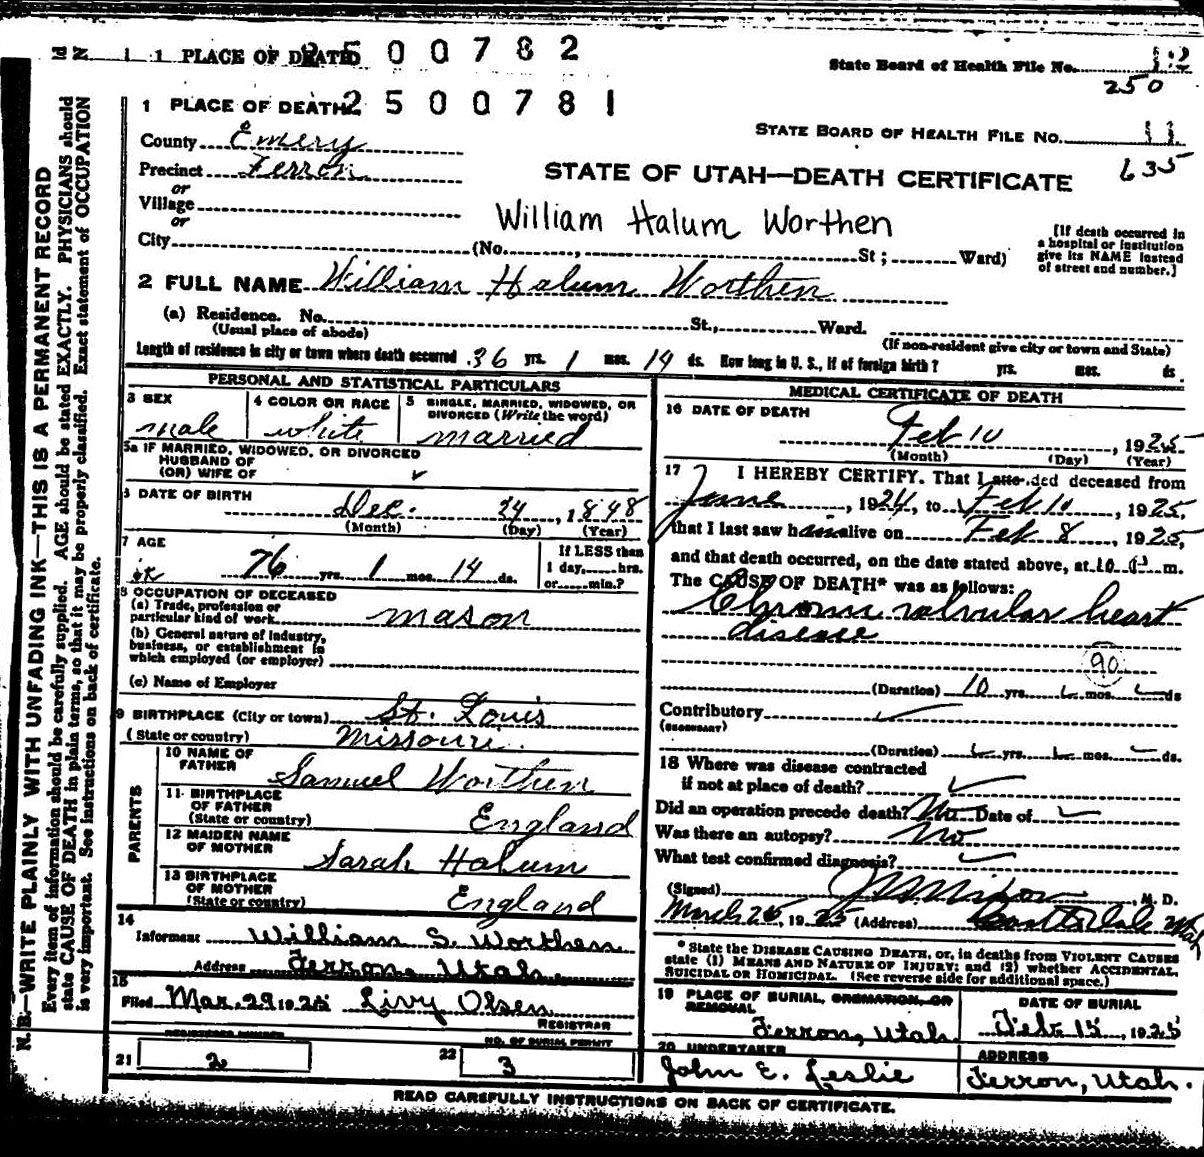 1 PLACE OF DEATH 2500782
State Board of Health File No. 12
250
1 PLACE OF DEATH 2500781
STATE BOARD OF HEALTH FILE NO. 11
635
County Emery
Precinct Ferron
or
Village
or
City (No. , St ; Ward)
STATE OF UTAH—DEATH CERTIFICATE
William Halum Worthen
[If death occurred in
a hospital or institution
give its NAME instead
of street and number.]
2 FULL NAME William Halum Worthen
(a) Residence. No. St., Ward.
(Usual place of abode) (If non-resident give city or town and State)
Length of residence in city or town where death occurred 36 yrs. 1 mos. 14 ds. How long in U. S., if of foreign birth? yrs. mos. ds
PERSONAL AND STATISTICAL PARTICULARS
3 SEX
male
4 COLOR OR RACE
white
5 SINGLE, MARRIED, WIDOWED, OR
DIVORCED (Write the word)
married
5a IF MARRIED, WIDOWED, OR DIVORCED
HUSBAND OF
(OR) WIFE OF
DATE OF BIRTH
Dec. 24, 1848
(Month) (Day) (Year)
7 AGE
76 yrs. 1 mos. 14 ds.
If LESS than
1 day, hrs.
or min.?
8 OCCUPATION OF DECEASED
(a) Trade, profession or
particular kind of work mason
(b) General nature of industry,
business, or establishment in
which employed (or employer)
(c) Name of Employer
9 BIRTHPLACE (City or town) St. Louis
(State or country) Missouri.
PARENTS
10 NAME OF
FATHER Samuel Worthen
11 BIRTHPLACE
OF FATHER
(State or country) England
12 MAIDEN NAME
OF MOTHER Sarah Halum
13 BIRTHPLACE
OF MOTHER
(State or country) England
14
Informant William S. Worthen
Address Ferron, Utah.
15
Filed Mar. 29 1925 Livy Olsen
REGISTRAR
REGISTERED NUMBER
21 2
NO. OF BURIAL PERMIT
22 3
MEDICAL CERTIFICATE OF DEATH
16 DATE OF DEATH
Feb 10, 1925
(Month) (Day) (Year)
17 I HEREBY CERTIFY, That I attended deceased from
June, 1924, to Feb 10, 1925,
that I last saw him alive on Feb 8, 1925,
and that death occurred, on the date stated above, at 10 m.
The CAUSE OF DEATH* was as follows:
Chronic valvular heart
disease
90
(Duration) 10 yrs. mos. ds
Contributory
(SECONDARY)
(Duration) yrs. mos. ds.
18 Where was disease contracted
if not at place of death?
Did an operation precede death? No Date of
Was there an autopsy? No
What test confirmed diagnosis?
(Signed) M. D.
March 26, 1925 (Address)
* State the DISEASE CAUSING DEATH, or, in deaths from VIOLENT CAUSES
state (1) MEANS AND NATURE OF INJURY; and (2) whether ACCIDENTAL,
SUICIDAL OR HOMICIDAL. (See reverse side for additional space.)
19 PLACE OF BURIAL, CREMATION, OR
REMOVAL
Ferron, Utah.
DATE OF BURIAL
Feb 15, 1925
20 UNDERTAKER
John E. Leslie
ADDRESS
Ferron, Utah.
READ CAREFULLY INSTRUCTIONS ON BACK OF CERTIFICATE.
N. B.—WRITE PLAINLY WITH UNFADING INK—THIS IS A PERMANENT RECORD
Every item of information should be carefully supplied. AGE should be stated EXACTLY. PHYSICIANS should
state CAUSE OF DEATH in plain terms, so that it may be properly classified. Exact statement of OCCUPATION
is very important. See instructions on back of certificate.